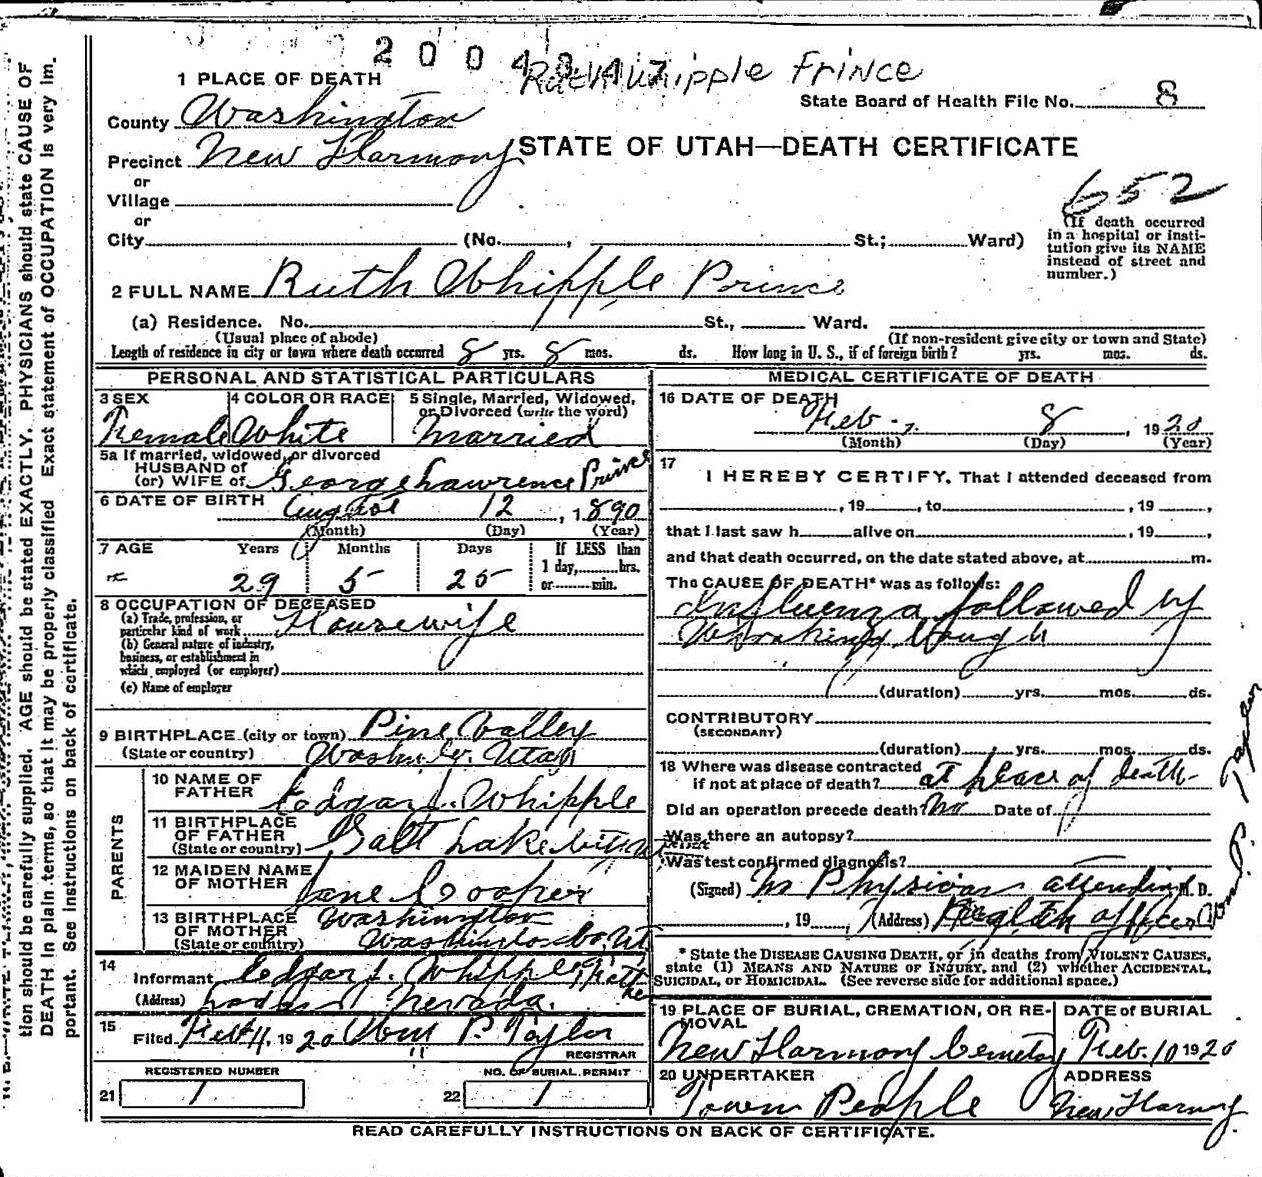 2 0 0 4 3 4 7
Ruth Whipple Prince
1 PLACE OF DEATH
State Board of Health File No. 8
County Washington
Precinct New Harmony
STATE OF UTAH—DEATH CERTIFICATE
or
Village
652
or
City (No. , St.; Ward)
(If death occurred
in a hospital or insti-
tution give its NAME
instead of street and
number.)
2 FULL NAME Ruth Whipple Prince
(a) Residence. No. St., Ward.
(Usual place of abode)
(If non-resident give city or town and State)
Length of residence in city or town where death occurred 8 yrs. 8 mos. ds. How long in U. S., if of foreign birth? yrs. mos. ds.
PERSONAL AND STATISTICAL PARTICULARS
3 SEX
Female
4 COLOR OR RACE
White
5 Single, Married, Widowed,
or Divorced (write the word)
Married
5a If married, widowed, or divorced
HUSBAND of
(or) WIFE of George Lawrence Prince
6 DATE OF BIRTH August 12, 1890
(Month) (Day) (Year)
7 AGE Years Months Days
29 5 25
If LESS than
1 day, hrs.
or min.
8 OCCUPATION OF DECEASED
(a) Trade, profession, or
particular kind of work Housewife
(b) General nature of industry,
business, or establishment in
which employed (or employer)
(c) Name of employer
9 BIRTHPLACE (city or town) Pine Valley
(State or country) Wash. Co. Utah
PARENTS
10 NAME OF
FATHER Edgar L. Whipple
11 BIRTHPLACE
OF FATHER
(State or country) Salt Lake City
12 MAIDEN NAME
OF MOTHER Jane Cooper
13 BIRTHPLACE
OF MOTHER
(State or country) Washington
Washington Co. Ut
14
Informant Edgar L. Whipple, Father
(Address) Nevada.
15
Filed Feb 11, 1920 Wm P. Taylor
REGISTRAR
REGISTERED NUMBER
21 1
NO. OF BURIAL PERMIT
22 1
MEDICAL CERTIFICATE OF DEATH
16 DATE OF DEATH
Feb. 8, 1920
(Month) (Day) (Year)
17
I HEREBY CERTIFY, That I attended deceased from
, 19 , to , 19 ,
that I last saw h alive on , 19 ,
and that death occurred, on the date stated above, at m.
The CAUSE OF DEATH* was as follows:
Influenza followed by
Whooping Cough
(duration) yrs. mos. ds.
CONTRIBUTORY
(SECONDARY)
(duration) yrs. mos. ds.
18 Where was disease contracted
if not at place of death? at place of death
Did an operation precede death? No Date of
Was there an autopsy?
What test confirmed diagnosis?
(Signed) No Physician attending M. D.
, 19 (Address) Health officer
Wm. P. Taylor
* State the DISEASE CAUSING DEATH, or in deaths from VIOLENT CAUSES,
state (1) MEANS AND NATURE OF INJURY, and (2) whether ACCIDENTAL,
SUICIDAL, or HOMICIDAL. (See reverse side for additional space.)
19 PLACE OF BURIAL, CREMATION, OR RE-
MOVAL
New Harmony Cemetery
DATE of BURIAL
Feb. 10 1920
20 UNDERTAKER
Town People
ADDRESS
New Harmony
READ CAREFULLY INSTRUCTIONS ON BACK OF CERTIFICATE.
tion should be carefully supplied. AGE should be stated EXACTLY. PHYSICIANS should state CAUSE OF
DEATH in plain terms, so that it may be properly classified Exact statement of OCCUPATION is very im-
portant. See instructions on back of certificate.